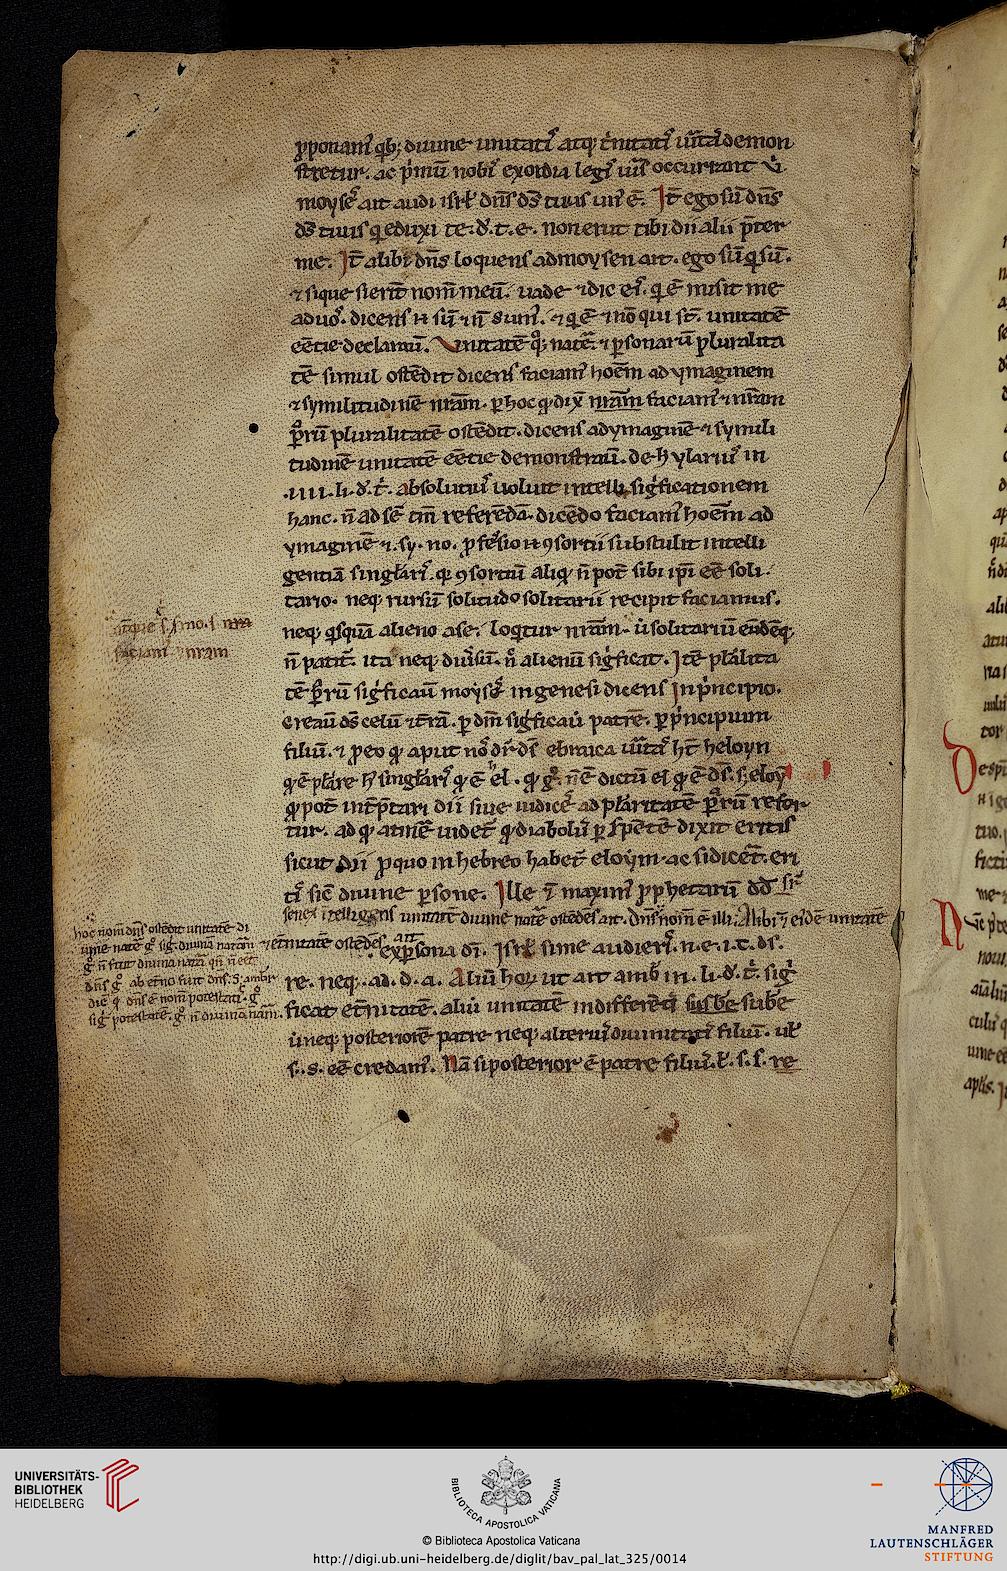 p̱ponam᷒ qͥb; diuine unitatis atq; tͥnitatis uͥtas demon
stretur. ac pͥmū nobis exordia legis uīs occurrant ů
moyses ait audi isrl̄ dn̄s ds̄ tuus un᷒ ē. It̄ ego sū dn̄s
ds̄ tuus qͥ eduxi te. d'. t. e. non erunt tibi dii alii p̄ter
me. It̄ alibi dn̄s loquens ad moysen ait. ego sū qͥ sū.
⁊ si que sierīt nom̄ meū. uade ⁊ dic eis. qͥ ē misit me
ad uos. dicens sū ⁊ n̄ sum᷒. ⁊ qͥ ē ⁊ nō qui st̄. unitatē
eētie declarauī. Unitatē qͦq; natͤ ⁊ p̱sonarū pluralita
tē simul ostēdit dicens faciam᷒ hoēm ad ymaginem
⁊ symilitudinē nrām. p̱ hoc qͦ dix̄ nrām faciam᷒ ⁊ nrām
p̱rū pluralitatē ostēdit. dicens ad ymaginē ⁊ symili
tudinē unitatē eētie demonstrauī. de h̄ ylarius in
.iiii. li. d'. t̄. absolutius uoluit intelli sigͥficationem
hanc. n̄ ad sē tm̄ referēdā. dicēdo faciam᷒ hoēm ad
ymaginē ⁊. sy. no. p̱fessio ꝯsortii sustulit intelli
gentiā singlaris. qͥ ꝯsortiū aliqͥ n̄ pot̄ sibi ip̄i eē soli
tario. neq; rursū solitudo solitarii recipit faciamus.
neq; qͥsquā alieno a se. loqͥtur nrām. ů solitariū eundēq;
n̄ patit̄. ita neq; diuisū. n̄ alienū sigͥficat. Itē pl̄alita
tē p̱rū sigͥficauī moyses in genesi dicens In pͥncipio.
creauī ds̄ celū ⁊ tr̄ā. p̱ dm̄ sigͥficauī patrē. p̱ pͥncipium
filiū. ⁊ p̱ eo qͦ aput nos dr̄ ds̄ ebraica uͥtas ht̄ heloyn
qͦ ē pl̄are hͥ singl̄aris qͦ ē el. qͦ gͦ n̄ ē dictū el qͦ ē ds̄. s; eloy
qͦ pot̄ int̄p̄tari dii siue iudices ad pl̄aritatē p̱rū refer
tur. ad qͦ atinē uidet̄ qͦ diabolus p̱ sp̄entē dixit eritis
sicut dii p̱ quo in hebreo habet̄ eloym. ac si dicet̄. eri
tis sic̄ diuine p̱sone. Ille ⁊ maxim᷒ p̱phetarū dd̄ sͥ
senex intelligens unitatē diuine natͤ ostēdēs ait. dn̄s nom̄ ē illi. Alibi ⁊ eidē unitatē
⁊ et̄nitatē ostēdēs
ait
ex p̱sona di. Isrl̄ si me audieris. n. e. i. t. ds̄.
re. neq;. ad. d. a. Aliū hoꝝ ut ait amb̄ in. li. d'. t̄. sigͥ
ficat et̄nitatē. aliū unitatē indifferētis susbe sube
ů neq; posteriorē patre neq; alterius diuinitatis filiū. ul̄
s. s. eē credam᷒. Nā si posterior ē patre filius. ul̄. s. s. re
faciam᷒ nrām
hoc nom̄ dn̄s ostēdit unitatē di
uine natͤ gͦ sig. diuinā naturā
gͦ n̄ fuit diuina nata qn̄ n̄ eēt
dn̄s gͦ ab et̄no fuit dn̄s. S; ambr
dic̄ qͦ dn̄s ē nom̄ potestatis gͦ
sig potestatē. gͦ n̄ diuinā nām.
UNIVERSITÄTS-
BIBLIOTHEK
HEIDELBERG
BIBLIOTECA APOSTOLICA VATICANA
© Biblioteca Apostolica Vaticana
http://digi.ub.uni-heidelberg.de/diglit/bav_pal_lat_325/0014
MANFRED
LAUTENSCHLÄGER
STIFTUNG